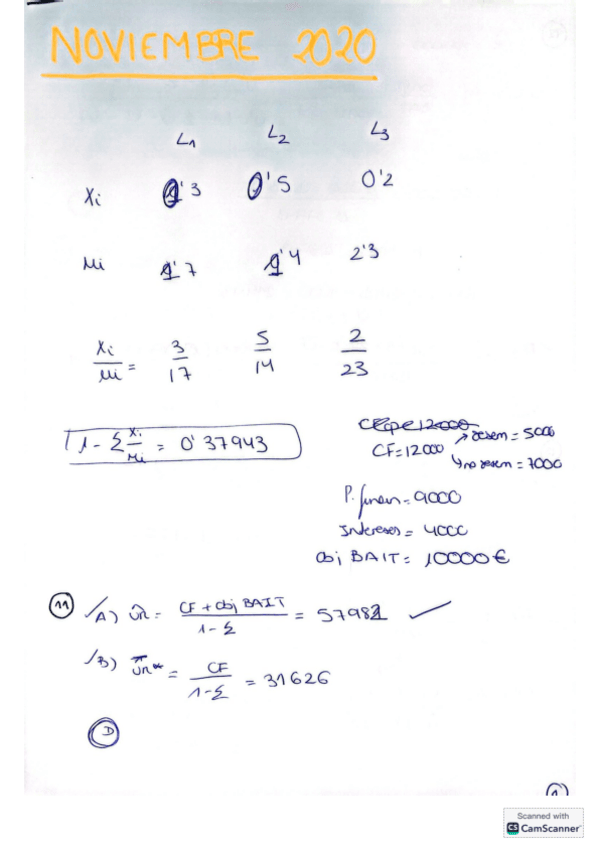 NOVIEMBRE 2020
L1 L2 L3
Xi 0'3 0'5 0'2
Mi 1'7 1'4 2'3
Xi/Mi = 3/17 5/14 2/23
1 - Σ Xi/Mi = 0'37943
CF=12000 → desem = 5000
↳ no desem = 7000
P. finan = 9000
Intereses = 4000
Obj BAIT = 10000€
11 A) = CF + Obj BAIT / 1 - Σ = 57982
B) = CF / 1-Σ = 31626
D
Scanned with
CS CamScanner